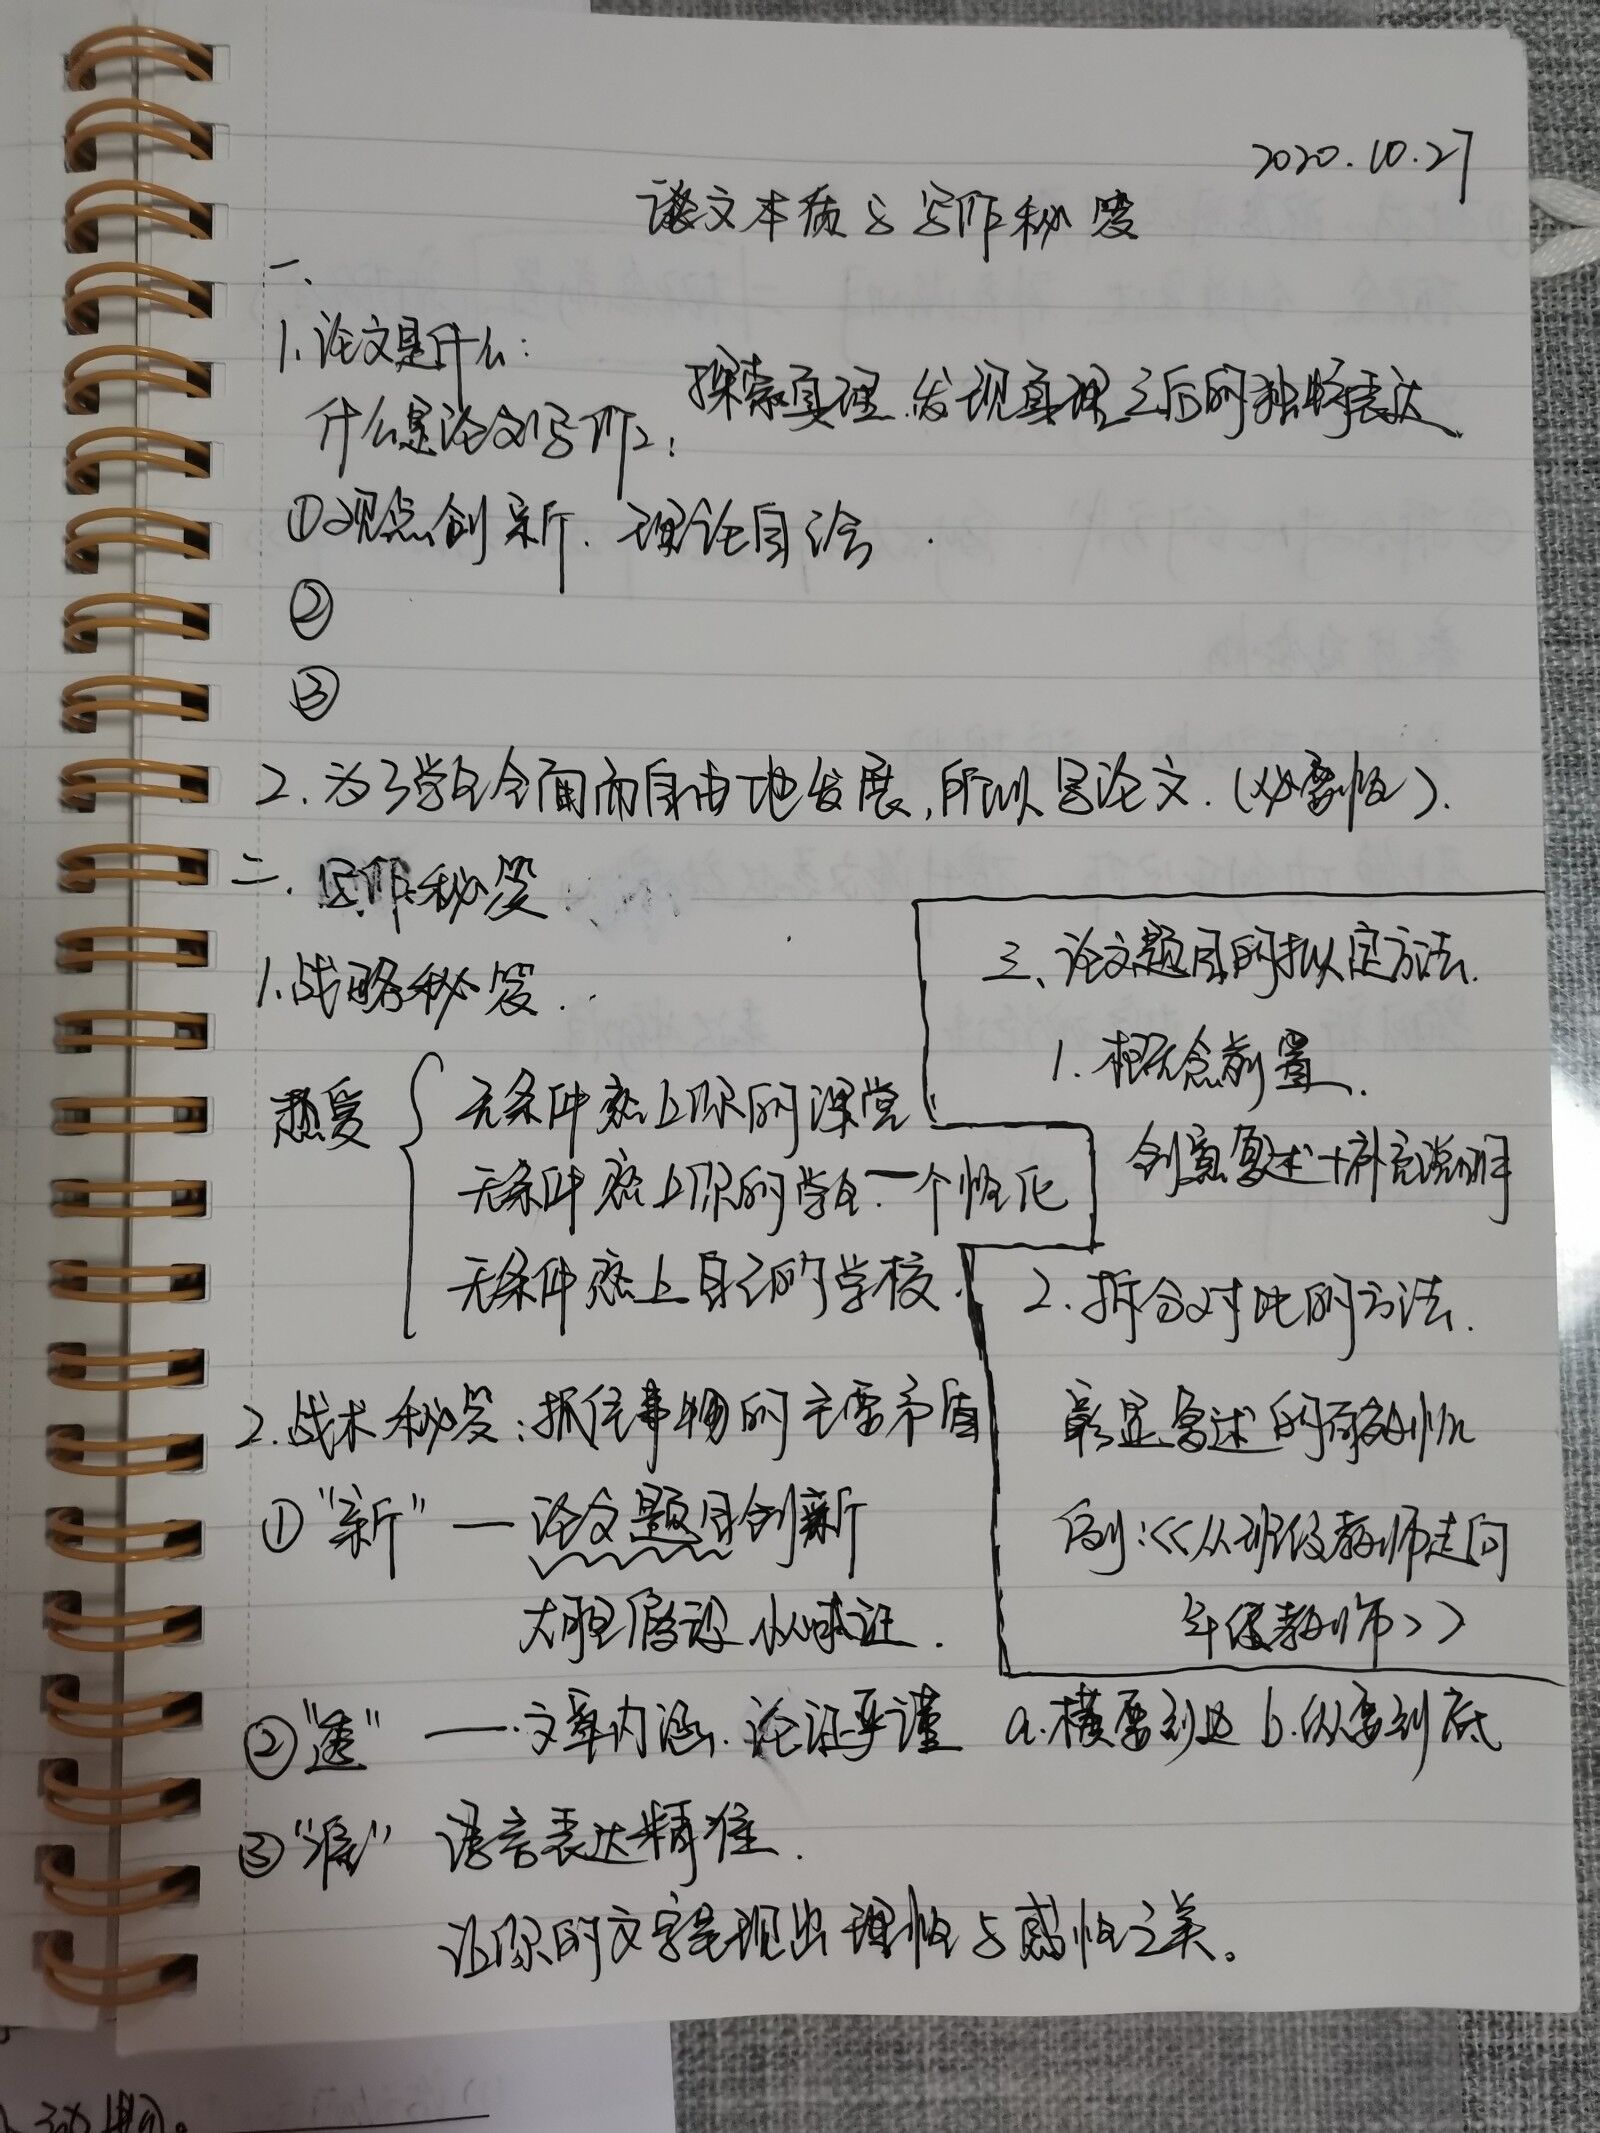 2020.10.27
论文本质与写作秘笈
一、
1. 论文是什么:
什么是论文写作: 探索真理、发现真理之后的独特表达
①观点创新、理论自洽.
②
③
2. 为了学生全面而自由地发展,所以写论文.(必要性).
二、写作秘笈
1. 战略秘笈.
热爱
无条件恋上你的课堂
无条件恋上你的学生一个性化
无条件恋上自己的学校.
2. 战术秘笈:抓住事物的主要矛盾
①“新” — 论文题目创新
大胆假设 小心求证.
三、论文题目的拟定方法.
1. 概念前置.
创意复述+补充说明
2. 拆合对比的方法.
彰显复述的
例:<<从班级教师走向
年级教师>>
②“透” — 文章内涵、论证严谨 a.横要到边 b.纵要到底
③ 语言表达精准.
让你的文字呈现出理性与感性之美。
动力。